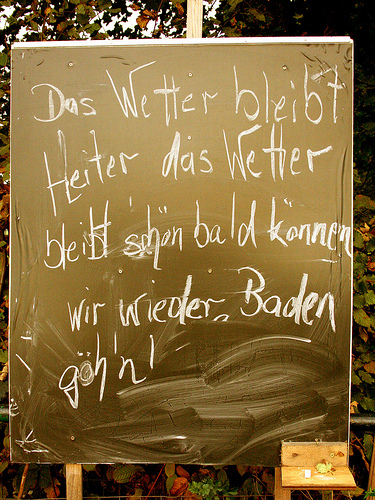 Das Wetter bleibt
Heiter das Wetter
bleibt schön bald können
wir wieder, Baden
göh'n!